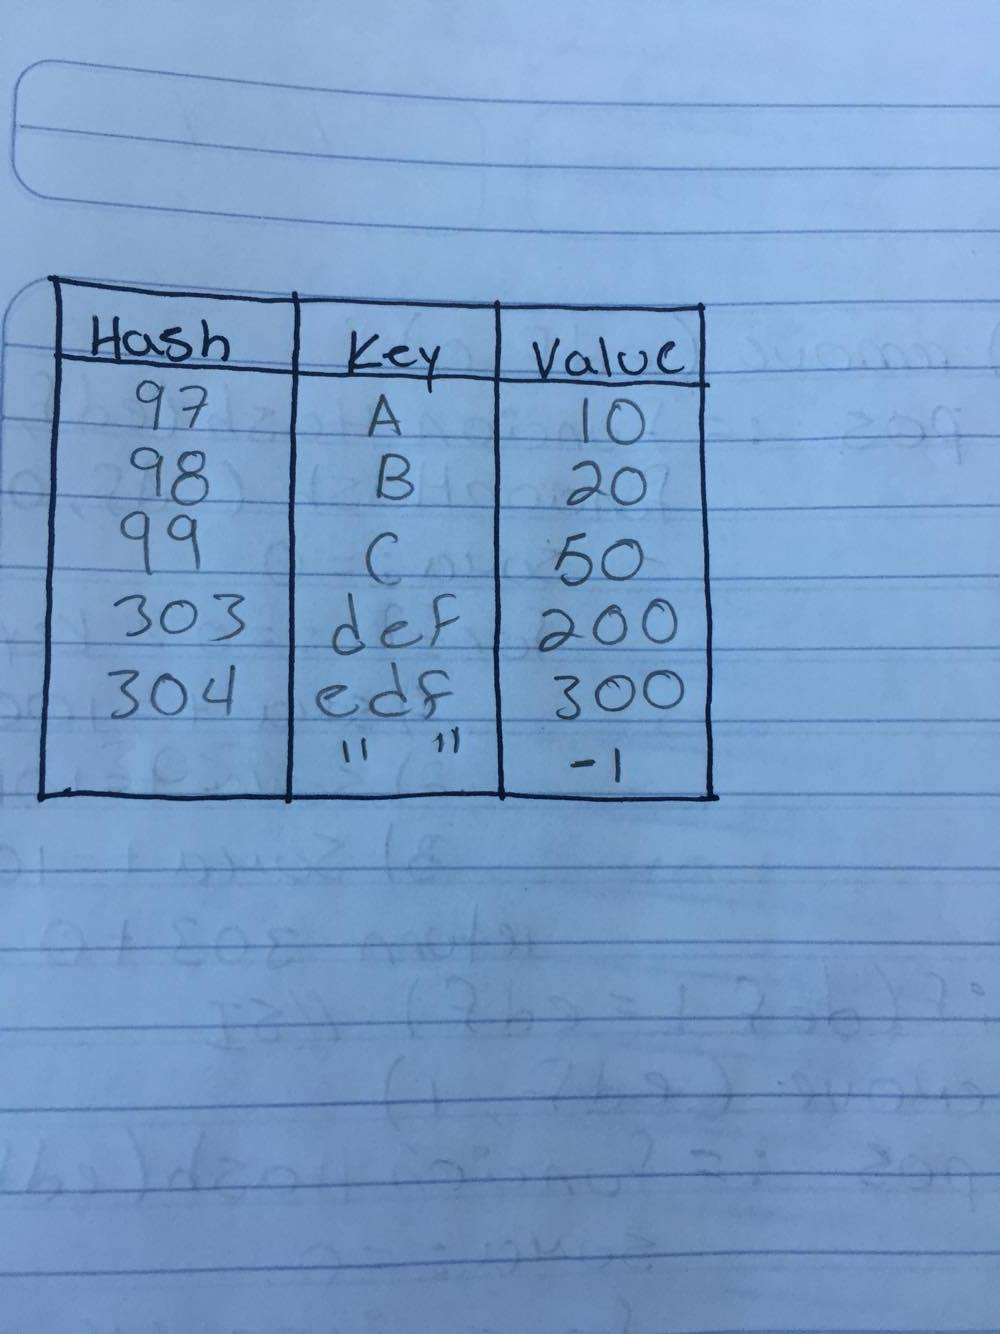 Hash Key Value
97 A 10
98 B 20
99 C 50
303 def 200
304 edf 300
" " -1